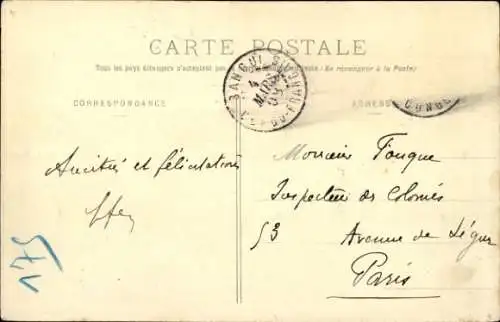 CARTE POSTALE
Tous les pays étrangers n'acceptent pas (Se renseigner à la Poste)
CORRESPONDANCE
ADRESSE
BANGUI
4
MARS
CONGO
Amitiés et félicitations
Monsieur Fouque
Inspecteur des Colonies
53 Avenue de Ségur
Paris
175